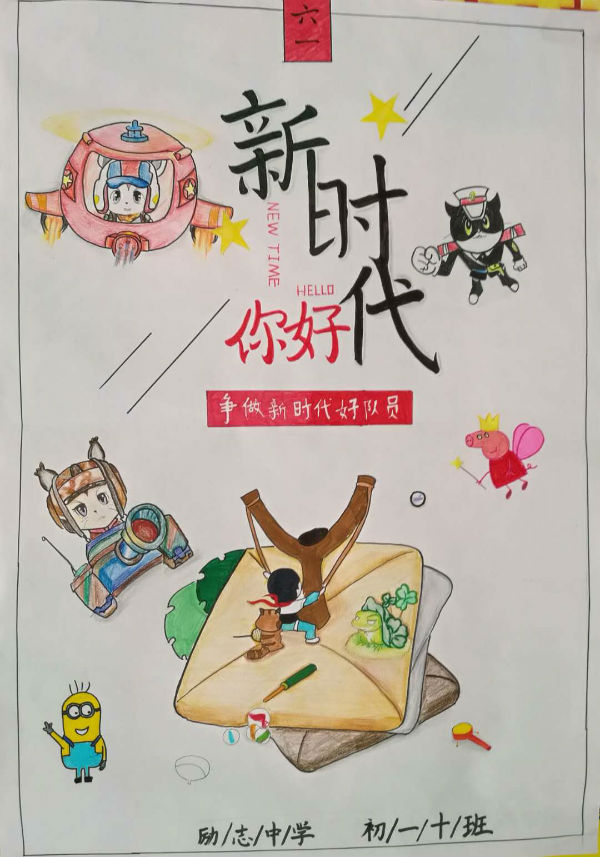 六一
新时代
NEW TIME
HELLO
你好
争做新时代好队员
励/志/中/学 初/一/十/班